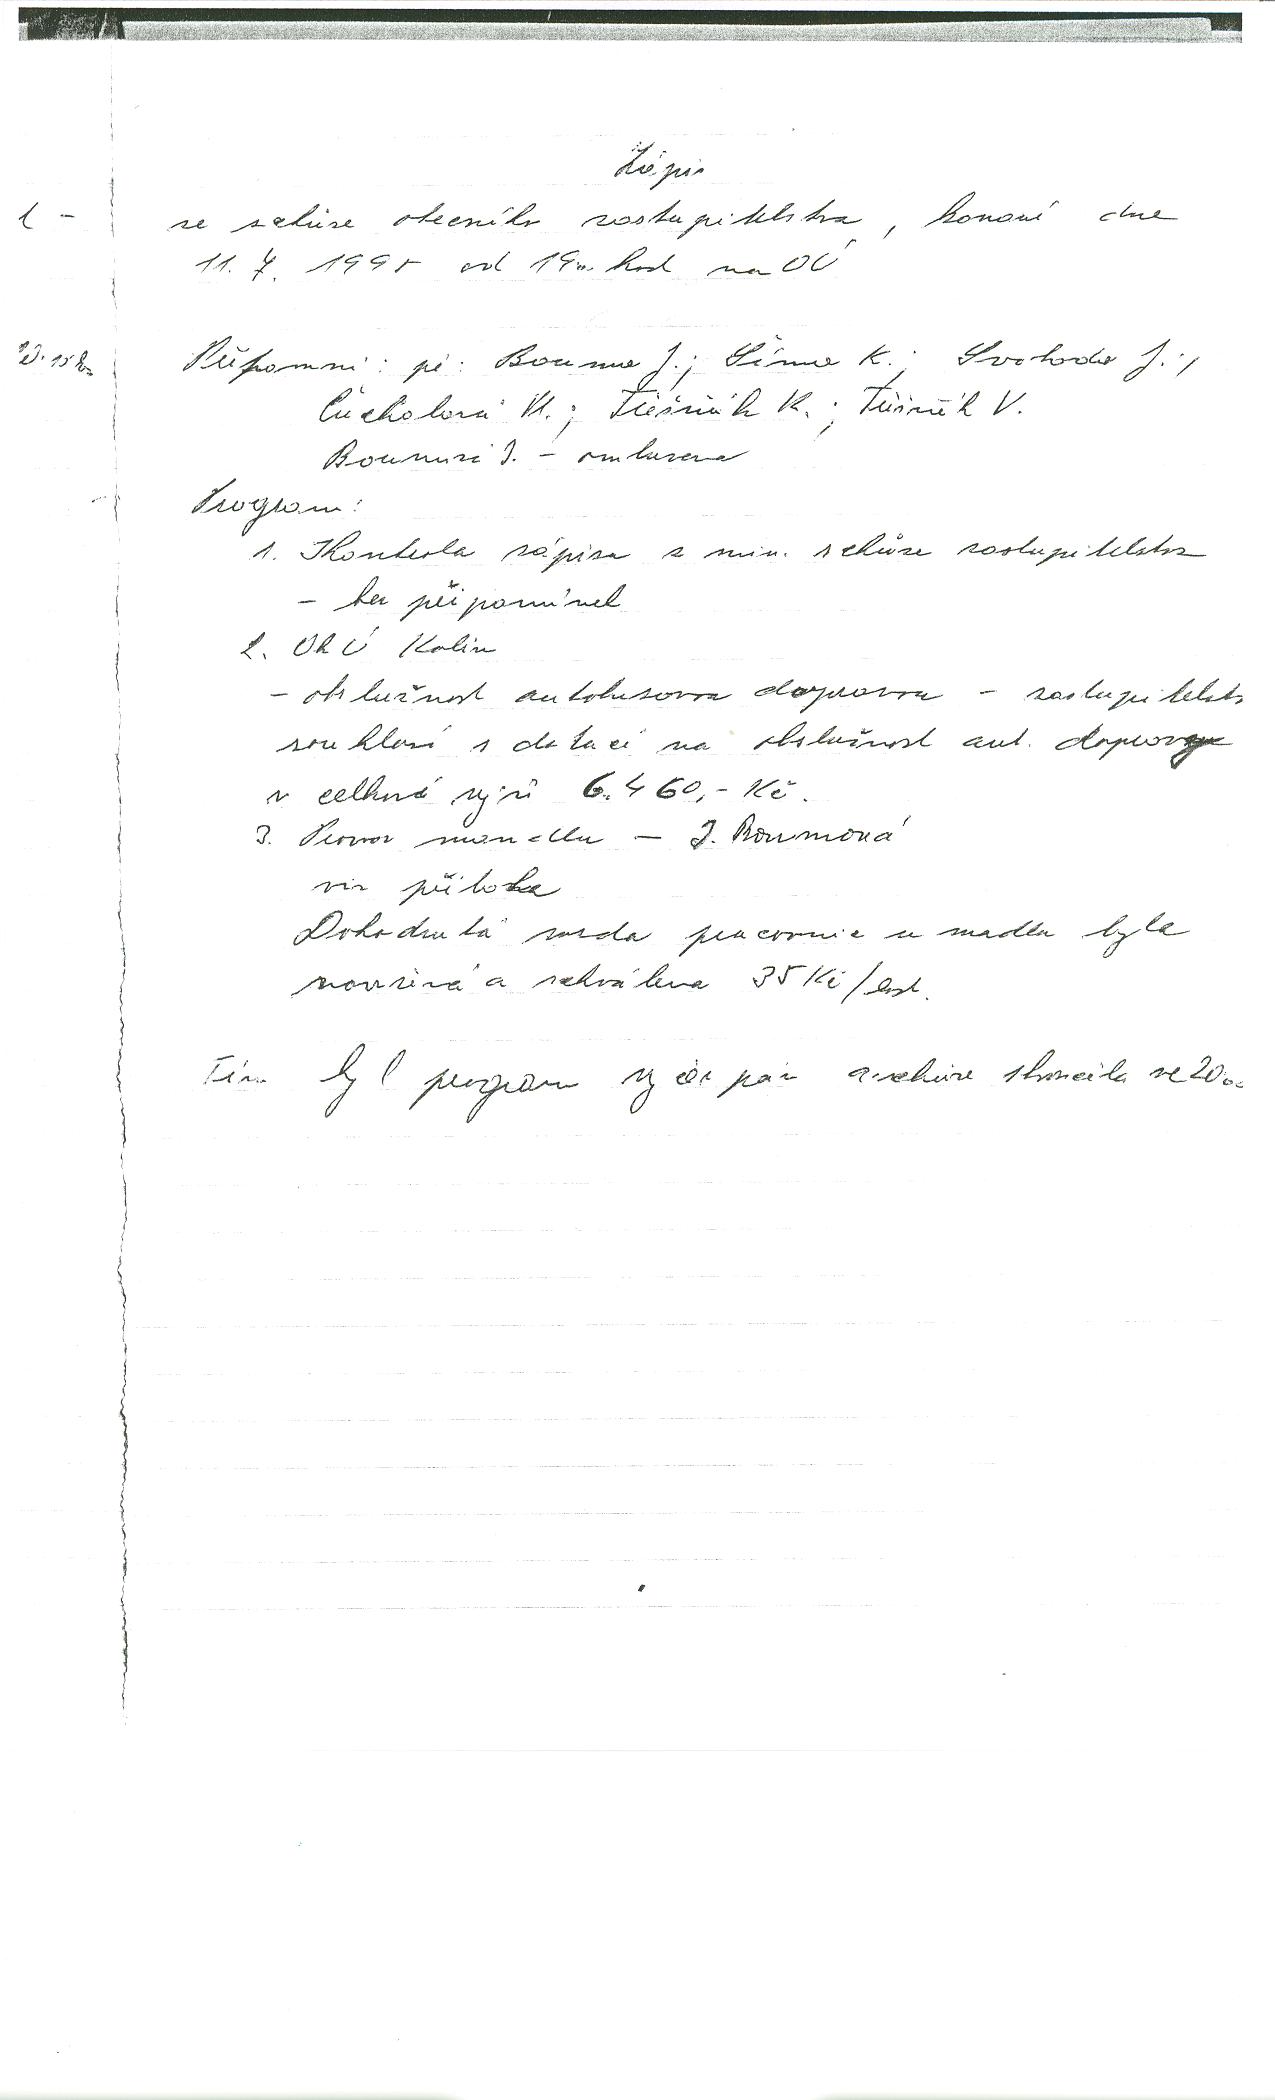 Zápis
ze schůze obecního zastupitelstva, konané dne
11. 7. 1995 od 19.00 hod na OÚ
Přítomni: pí: Bouma J.; Šíma K.; Svoboda J.;
K.; V.
Boumová J. - omluvena
Program:
1. Kontrola zápisu z min. schůze zastupitelstva
- bez připomínek
2. OkÚ Kolín
- obslužnost autobusovou dopravou - zastupitelstv
souhlasí s dotací na obslužnost aut. dopravy
v celkové výši 6.460,- Kč.
3. Provoz - J. Boumová
viz příloha
Dohodnutá mzda pracovnice u byla
a schválena 35 Kč/hod.
Tím byl program vyčerpán a schůze skončila ve 20.00